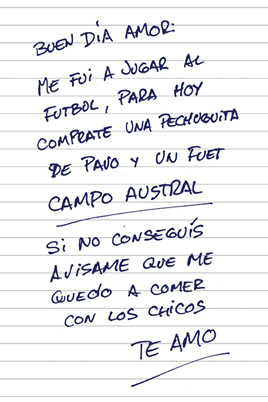 BUEN DÍA AMOR:
ME FUI A JUGAR AL
FUTBOL, PARA HOY
COMPRATE UNA PECHUGUITA
DE PAVO Y UN FUET
CAMPO AUSTRAL
SI NO CONSEGUÍS
AVISAME QUE ME
QUEDO A COMER
CON LOS CHICOS
TE AMO